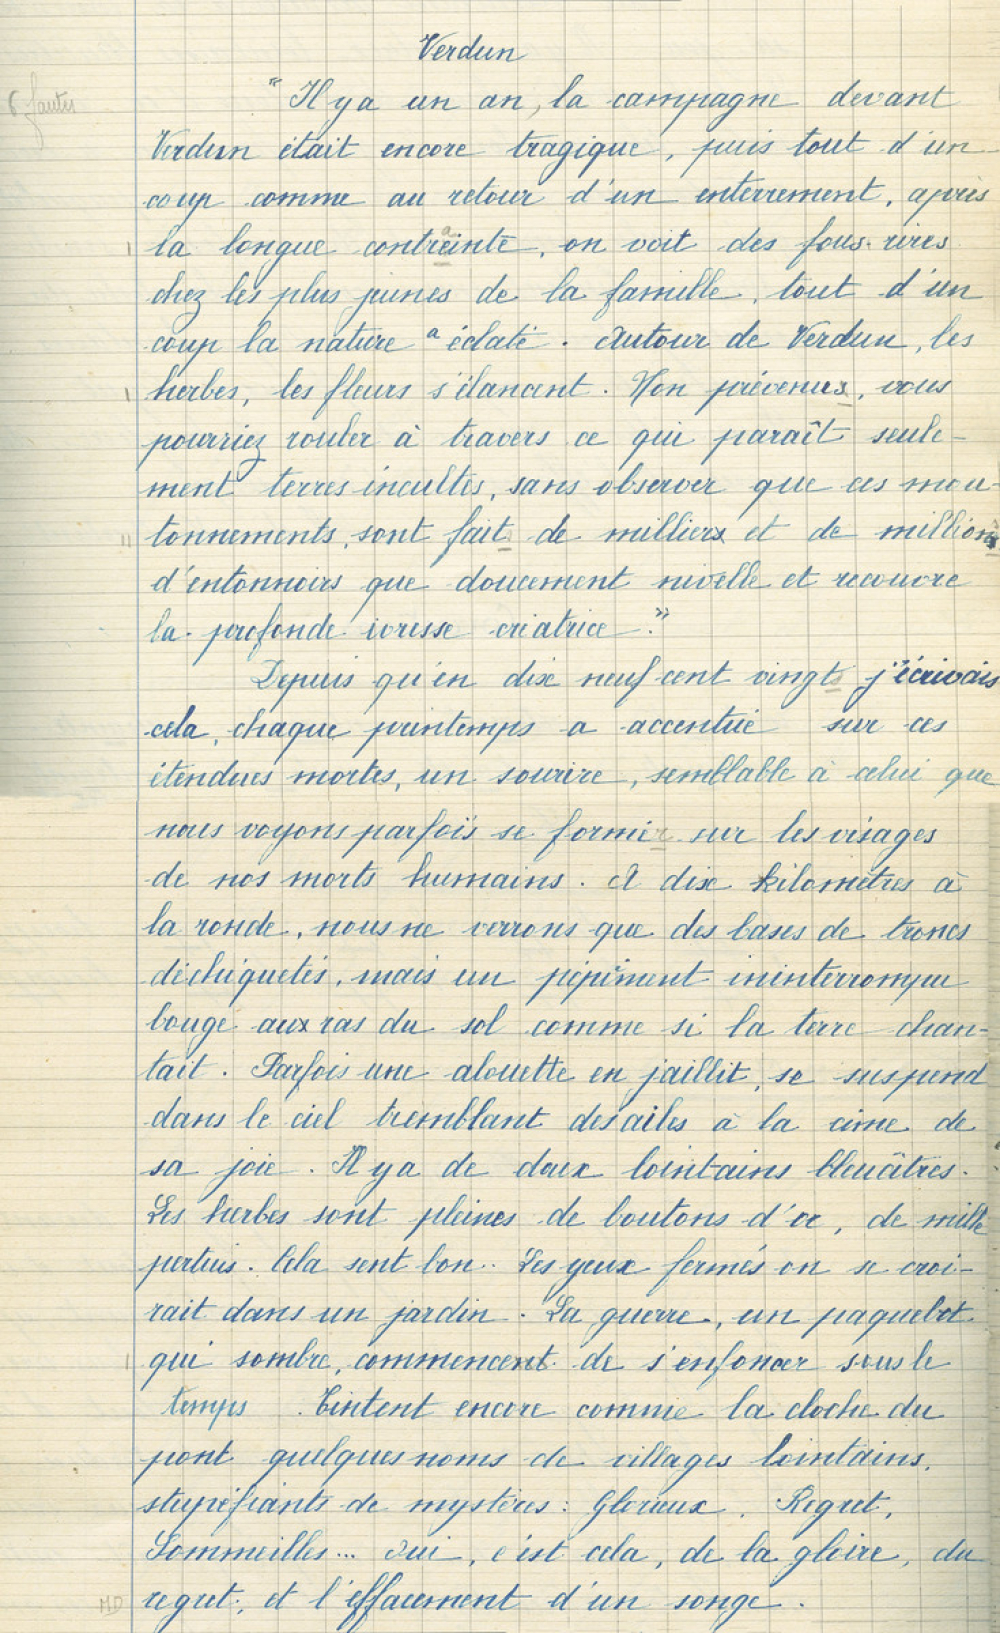 Verdun
6 fautes
" Il y a un an, la campagne devant
Verdun était encore tragique, puis tout d'un
coup comme au retour d'un enterrement, après
I la longue contreinte, on voit des fous rires
chez les plus jeunes de la famille, tout d'un
coup la nature a éclaté. Autour de Verdun, les
I herbes, les fleurs s'élancent. Non prévenus, vous
pourriez rouler à travers ce qui paraît seule-
ment terres incultes, sans observer que ces mou-
II tonnements, sont fait de milliers et de millions
d'entonnoirs que doucement nivelle et recouvre
la profonde ivresse créatrice."
Depuis qu'en dix neuf cent vingt j'écrivais
cela, chaque printemps a accentué sur ces
étendues mortes, un sourire, semblable à celui que
nous voyons parfois se former sur les visages
de nos morts humains. A dix kilomètres à
la ronde, nous ne verrons que des bases de troncs
déchiquetés, mais un pépiment ininterrompu
bouge aux ras du sol comme si la terre chan-
tait. Parfois une alouette en jaillit, se suspend
dans le ciel tremblant des ailes à la cime de
sa joie. Il y a de doux lointains bleuâtres.
Les herbes sont pleines de boutons d'or, de mille
pertuis. Cela sent bon. Les yeux fermés on se croi-
rait dans un jardin. La guerre, un paquebot
I qui sombre, commencent de s'enfoncer sous le
temps. Tintent encore comme la cloche du
pont quelques noms de villages lointains,
stupéfiants de mystères : Glorieux, Regret,
Sommeilles... oui, c'est cela, de la gloire, du
MD regret, et l'effacement d'un songe.